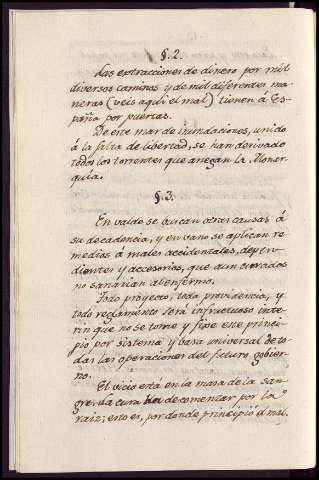 §. 2.
Las extracciones de dinero por mil
diversos caminos y de mil diferentes ma
neras (veis aqui el mal) tienen á Es-
paña por puertas.
De este mar de inundaciones, unido
á la falta de libertad, se han derivado
todos los torrentes que anegan la Monar
quia.
§. 3.
En valde se buscan otras causas á
su decadencia, y en vano se aplican re
medios á males accidentales, depen-
dientes y accesorios, que aun curados
no sanarian al enfermo.
Todo proyecto, toda providencia, y
todo reglamento será infructuoso inte-
rin que no se tome y fixe este princi-
pio por sistema y basa universal de to-
das las operaciones del futuro gobier-
no.
El vicio está en la masa de la san-
gre. La cura ha de comenzar por la
raiz; esto es, por donde principió el mal.